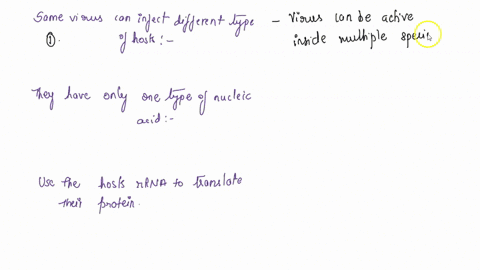 Same virus can inject different type
① . of hosts :-
- Virus can be active
inside multiple speci
They have only one type of nucleic
acid :-
Use the hosts rRNA to translate
their protein .